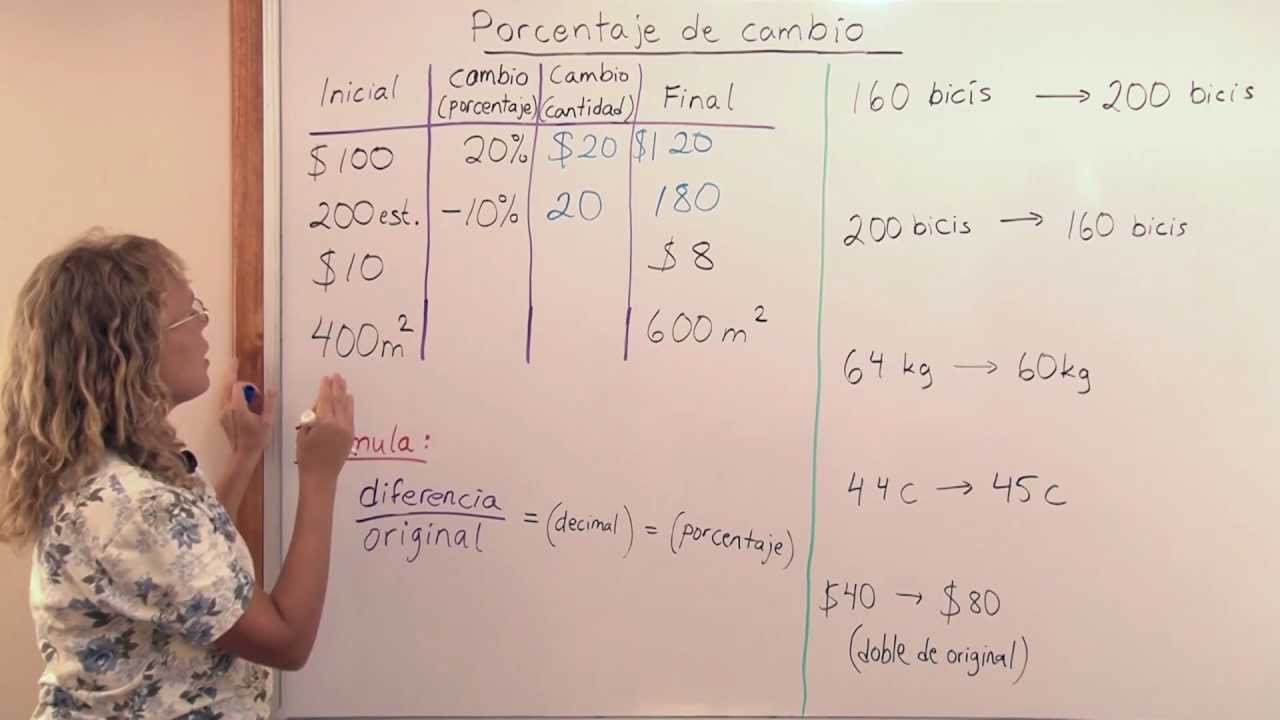 Porcentaje de cambio
Inicial cambio (porcentaje) Cambio (cantidad) Final
$100 20% $20 $120
200 est. -10% 20 180
$10 $8
400m² 600 m²
mula:
diferencia
original
= (decimal) = (porcentaje)
160 bicis → 200 bicis
200 bicis → 160 bicis
64 kg → 60kg
44c → 45c
$40 → $80
(doble de original)